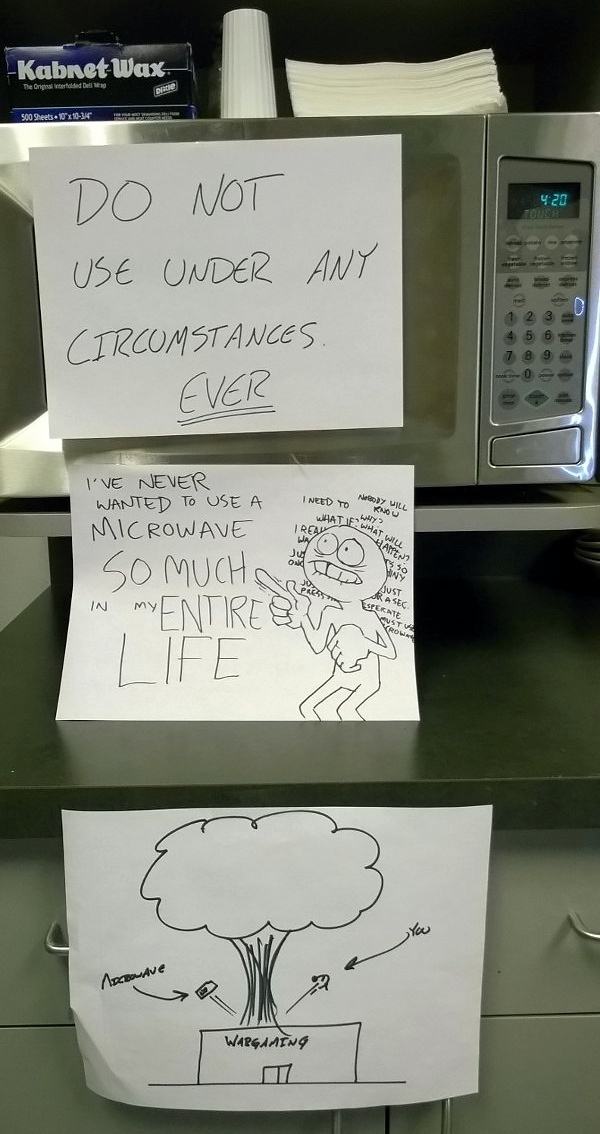 Kabnet-Wax
The Original Interfolded Deli Wrap
Dixie
500 Sheets • 10" x 10-3/4"
4:20
TOUCH
1 2 3
4 5 6
7 8 9
0
DO NOT
USE UNDER ANY
CIRCUMSTANCES.
EVER
I'VE NEVER
WANTED TO USE A
MICROWAVE
SO MUCH
IN MY ENTIRE
LIFE
I NEED TO
NOBODY WILL
KNOW
WHAT IF
WHY?
WHAT WILL
HAPPEN?
JUST
PRESS
JUST
A SEC.
MUST USE
YOU
MICROWAVE
WARGAMING